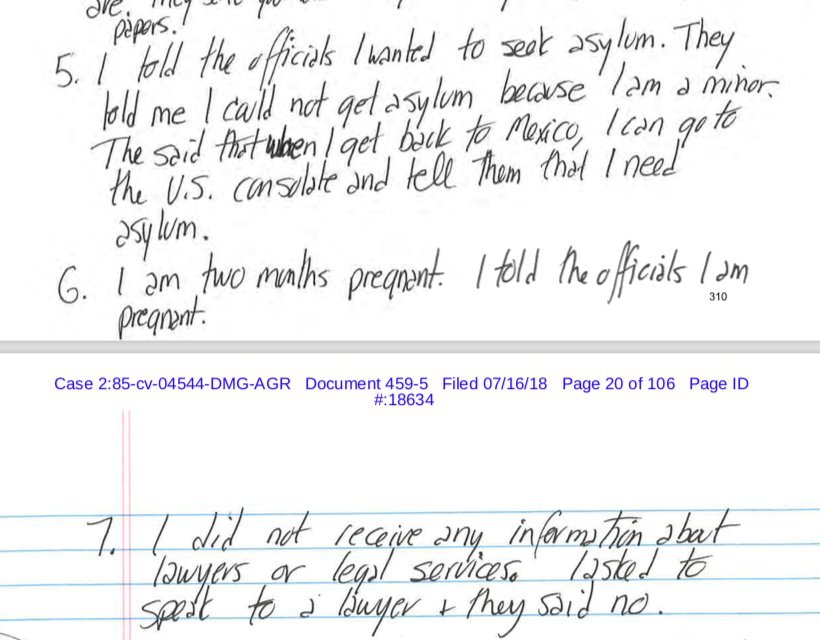 are. They
papers.
5. I told the officials I wanted to seek asylum. They
told me I could not get asylum because I am a minor.
The said that when I get back to Mexico, I can go to
the U.S. consulate and tell them that I need
asylum.
6. I am two months pregnant. I told the officials I am
310
pregnant.
Case 2:85-cv-04544-DMG-AGR Document 459-5 Filed 07/16/18 Page 20 of 106 Page ID
#:18634
7. I did not receive any information about
lawyers or legal services. I asked to
speak to a lawyer + they said no.